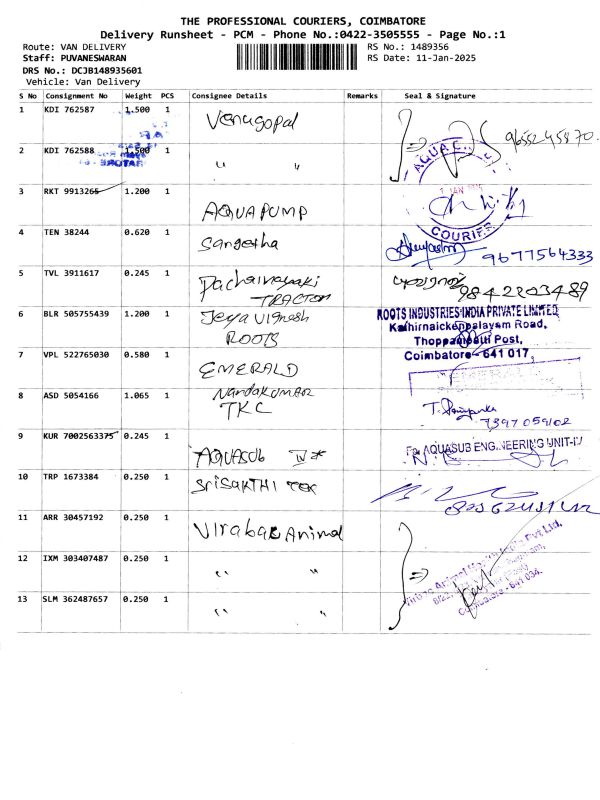 THE PROFESSIONAL COURIERS, COIMBATORE
Delivery Runsheet - PCM - Phone No.:0422-3505555 - Page No.:1
Route: VAN DELIVERY RS No.: 1489356
Staff: PUVANESWARAN RS Date: 11-Jan-2025
DRS No.: DCJB148935601
Vehicle: Van Delivery
S No Consignment No Weight PCS Consignee Details Remarks Seal & Signature
1 KDI 762587 1.500 1 Venugopal 9655245870.
2 KDI 762588 1.500 1 " " AQUA
3 RKT 9913265 1.200 1 AQUAPUMP
COURIER
4 TEN 38244 0.620 1 Sangetha 9677564333
5 TVL 3911617 0.245 1 Pachainayaki 9842203489
TRACTOR
6 BLR 505755439 1.200 1 Jeya Vignesh ROOTS INDUSTRIES INDIA PRIVATE LIMITED
ROOTS Kathirnaickenpalayam Road,
Thoppampatti Post,
7 VPL 522765030 0.580 1 Coimbatore - 641 017.
EMERALD
8 ASD 5054166 1.065 1 Nandakumar
TKC 7397059102
9 KUR 7002563375 0.245 1 AQUASUB IV For AQUASUB ENGINEERING UNIT-IV
10 TRP 1673384 0.250 1 Sri SAKTHI TEX
11 ARR 30457192 0.250 1 Virabac Animal
12 IXM 303407487 0.250 1 " " Virbac Animal Health India Pvt Ltd.
13 SLM 362487657 0.250 1 " " Coimbatore - 641 034.